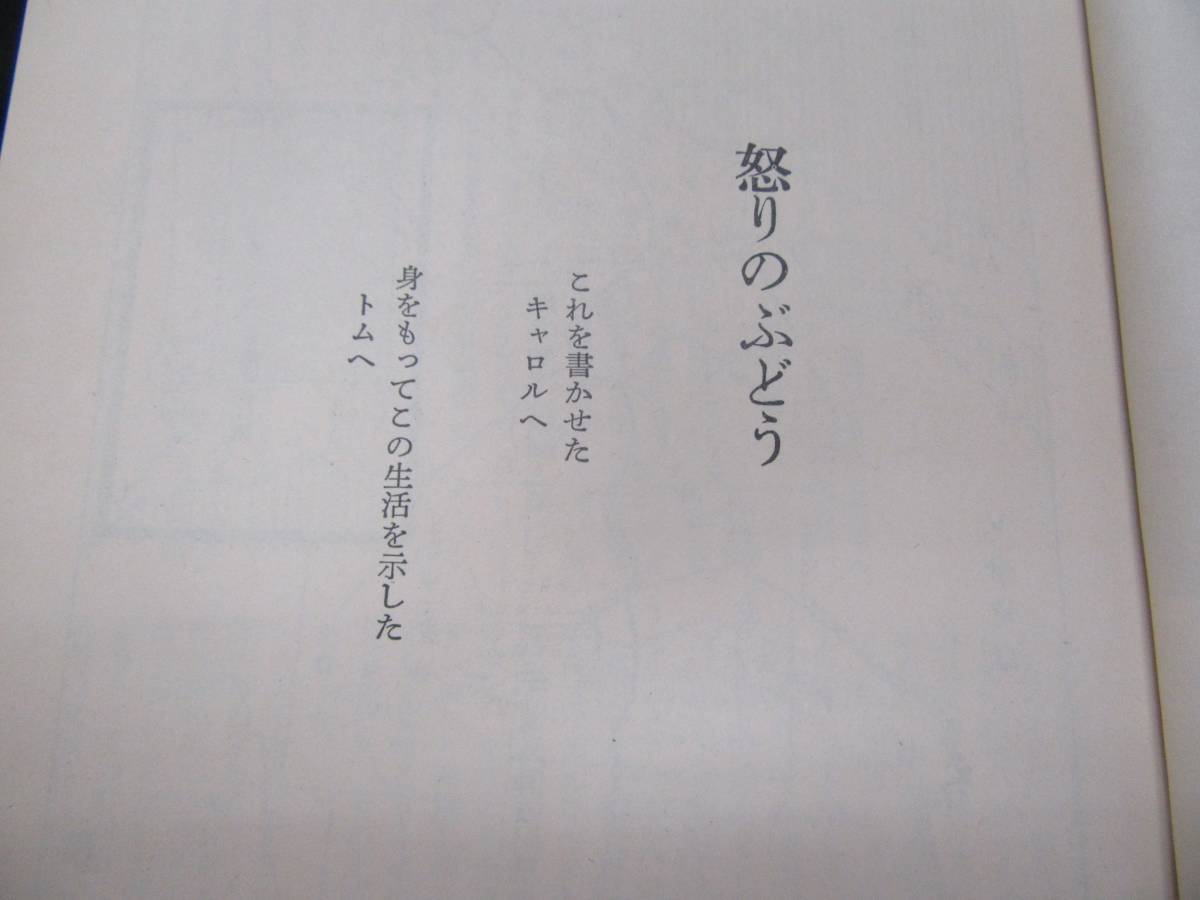 怒りのぶどう
これを書かせた
キャロルへ
身をもってこの生活を示した
トムへ